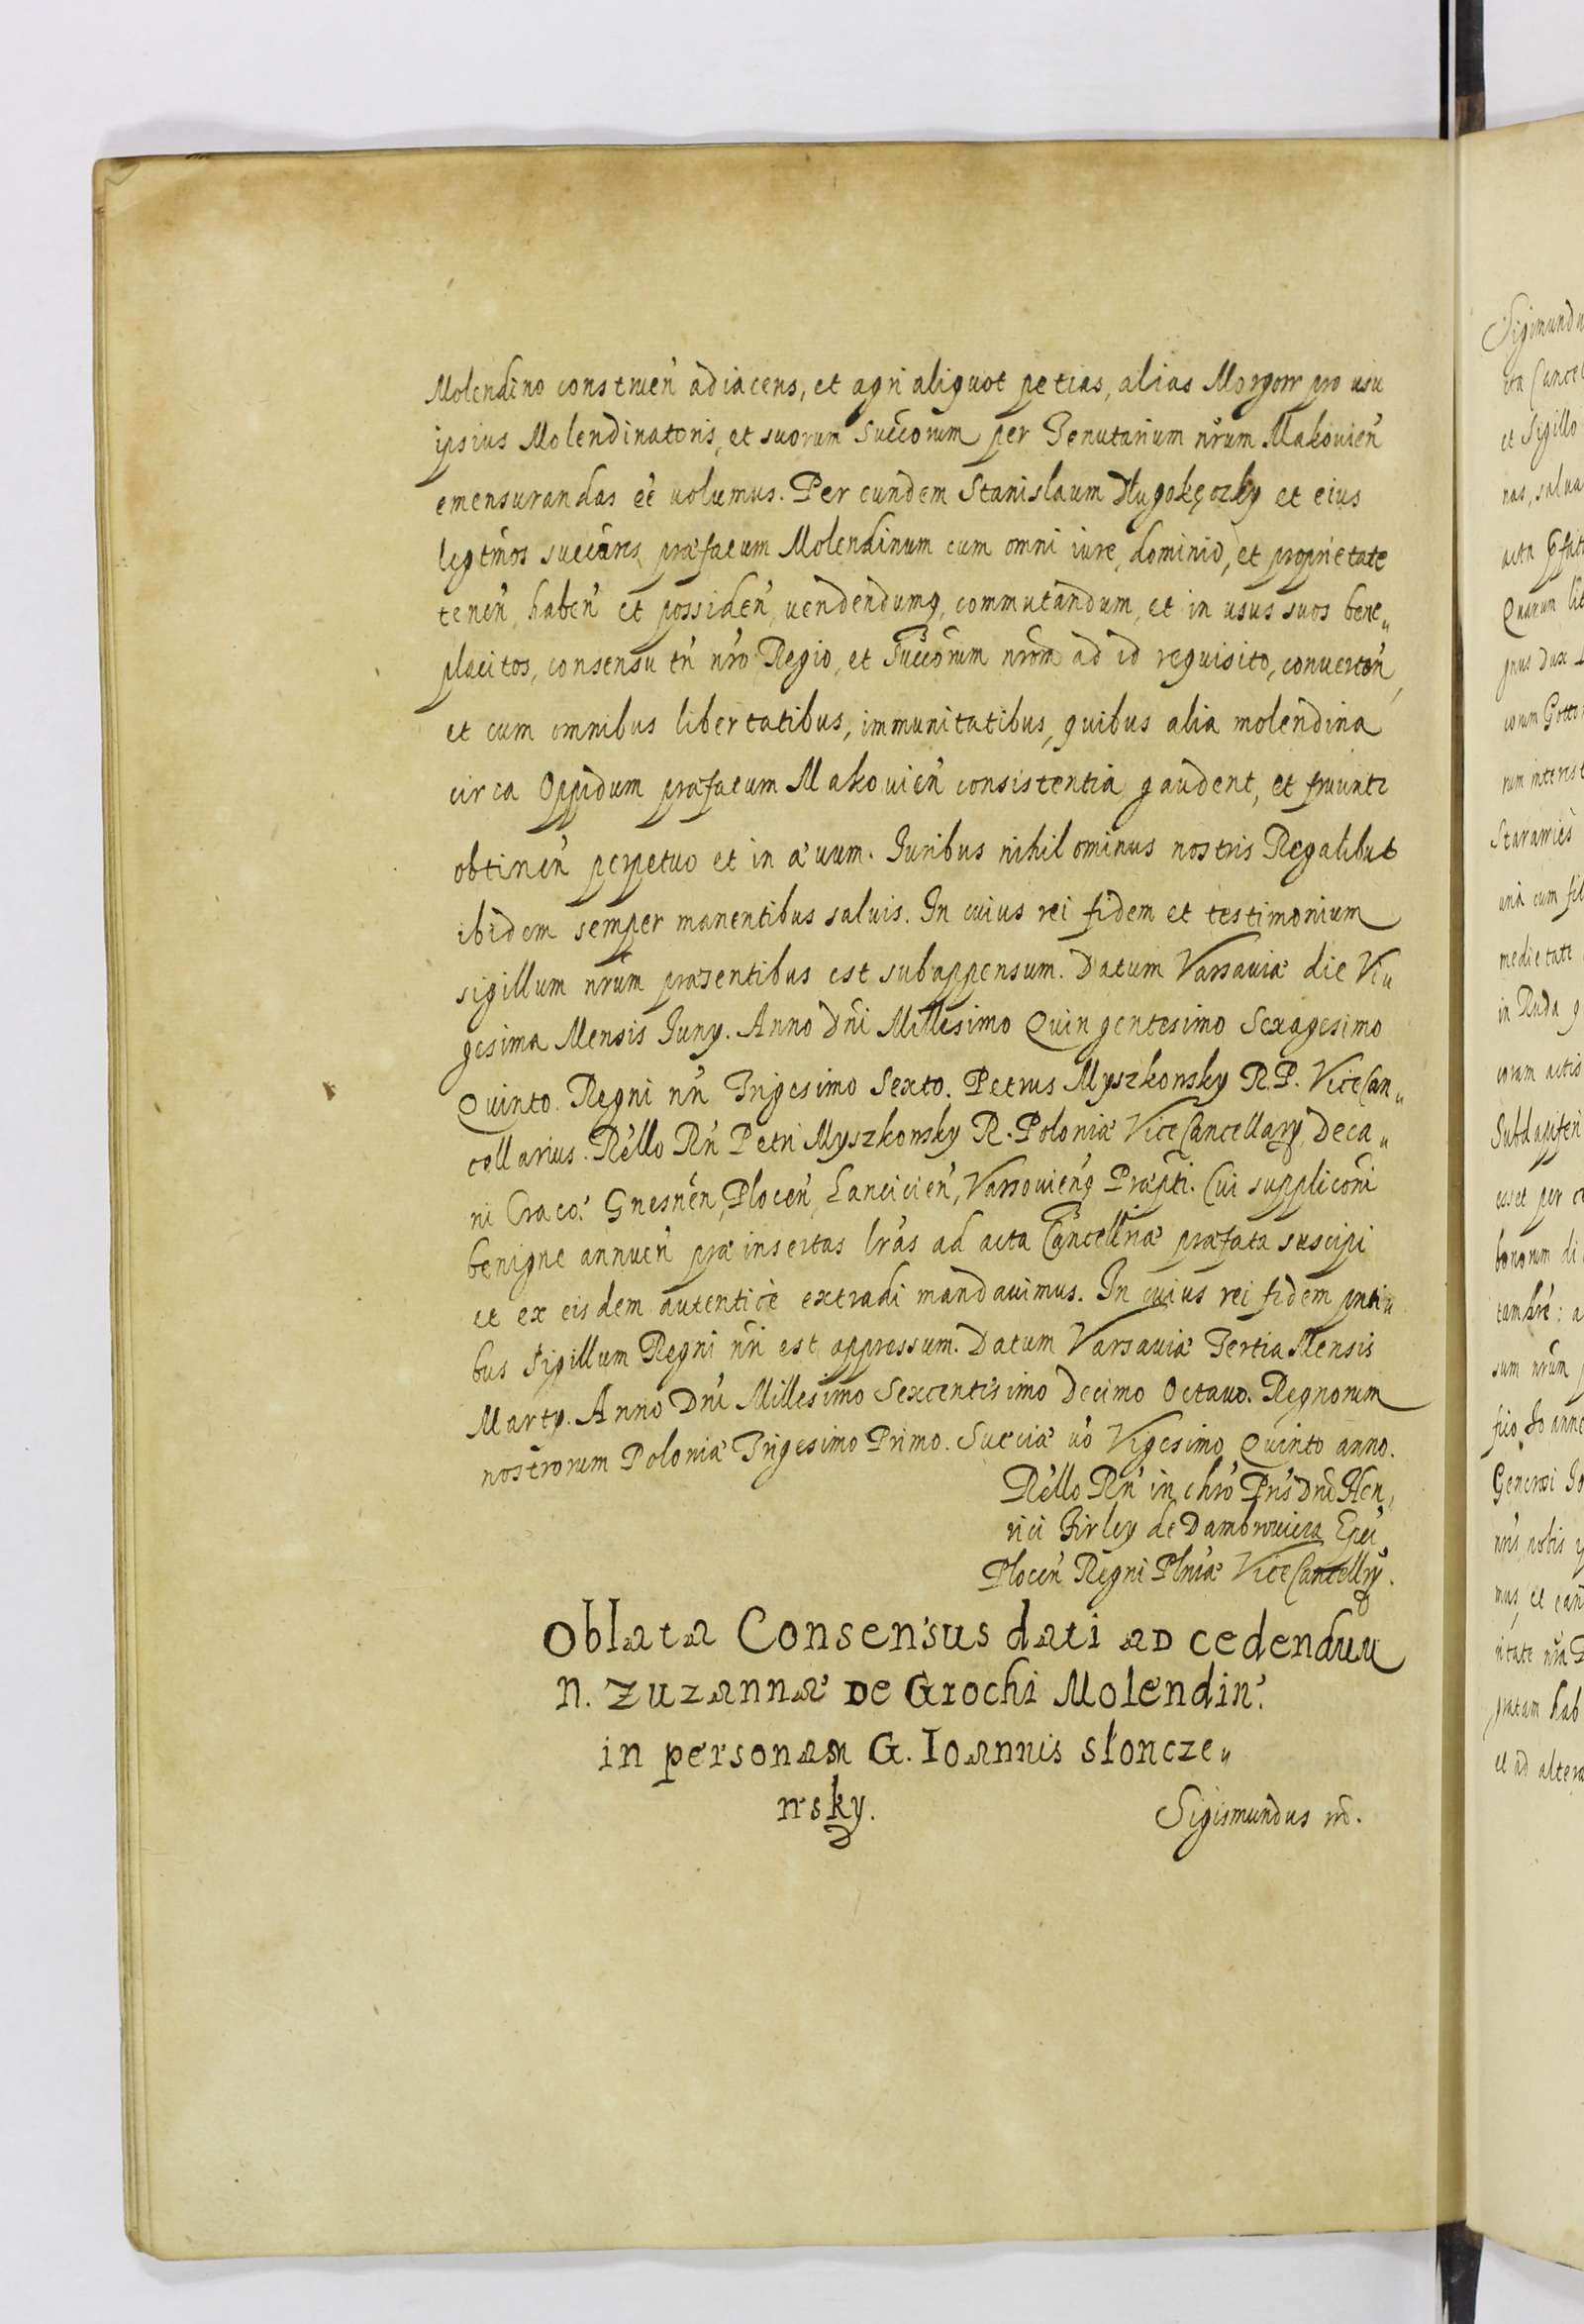 Molendino construeñ adiacens, et agri aliquot petias, alias Morgow pro usu
ipsius Molendinatoris, et suorum Succorum per Tenutarium nrum Makouieñ
emensurandas ee uolumus. Per eundem Stanislaum Długokęczky et eius
legtmos succores, præfatum Molendinum cum omni iure, dominio, et proprietate
teneñ, habeñ et possideñ, uendendumq, commutandum, et in usus suos bene„
placitos, consensu tñ nro Regio, et Succorum nrom ad id requisito, conuerteñ,
et cum omnibus libertatibus, immunitatibus, quibus alia molendina
circa Oppidum præfatum Makouieñ consistentia gaudent, et fruuntr
obtineñ perpetuo et in æuum. Iuribus nihilominus nostris Regalibus
ibidem semper manentibus saluis. In cuius rei fidem et testimonium
sigillum nrum præsentibus est subappensum. Datum Varsauiæ die Vi„
gesima Mensis Iuny. Anno Dni Millesimo Quingentesimo Sexagesimo
Quinto. Regni nri Trigesimo Sexto. Petrus Myszkowsky R. P. ViceCan„
cellarius. Rello Rñ Petri Myszkowsky R. Poloniæ ViceCancellary, Deca„
ni Craco: Gnesneñ, Ploceñ, Lancicieñ, Varsouieñq Præpti. Cui suppliconi
benigne annueñ præinsertas lras ad acta Cancellriæ præfata suscipi
et ex eisdem autentice extradi mandauimus. In cuius rei fidem pnti„
bus Sigillum Regni nri est appressum. Datum Varsauiæ Tertia Mensis
Marty. Anno Dni Millesimo Sexcentisimo Decimo Octauo. Regnorum
nostrorum Poloniæ Trigesimo Primo. Sueciæ uo Vigesimo Quinto anno.
Rello Rñ in chro Pris Dni Hen„
rici Firley de Dambrowica Epei
Ploceñ Regni Plniæ ViceCancellry.
Oblata Consensus dati ad cedendum
N. Zuzannæ de Grochi Molendin:
in personam G. Ioannis słoncze„
wsky.
Sigismundus III.
Sigimundu
et Sigillo
nas, salua
acta
Quarum lit
gnus dux
rum interest
una cum fil
medietate
in Ruda
coram actis
esset per
bonorum di
sum nrum
Generosi Io
nris nobis
mus, et ean
gratam hab
et ad altera